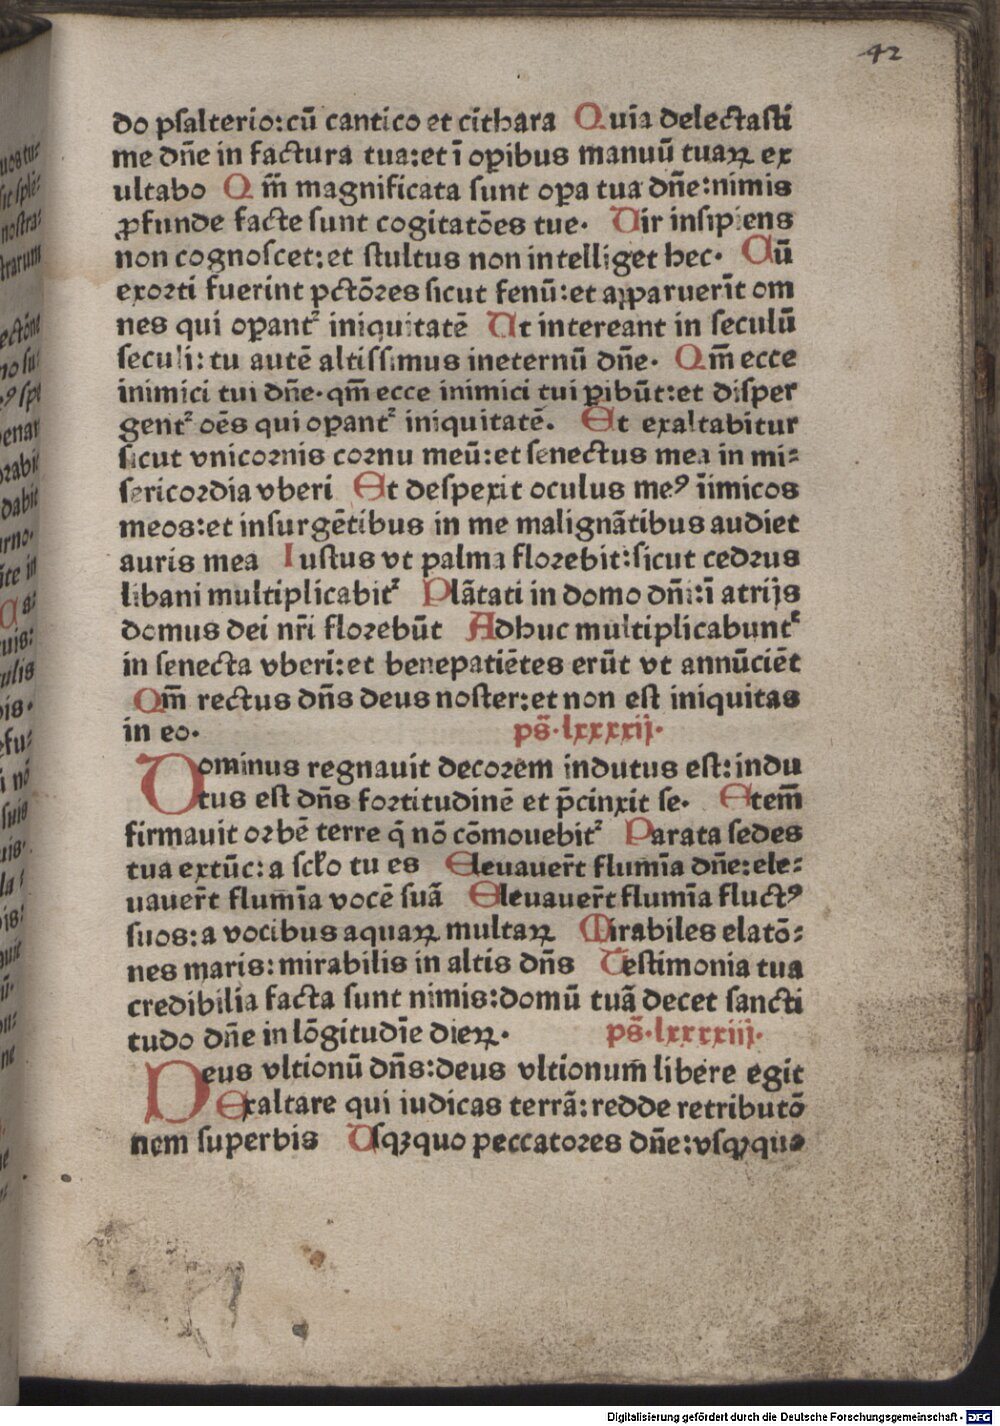 42
do psalterio:cū cantico et cithara Quīa delectasti
me dn̄e in factura tua:et ī oꝑibus manuū tuaꝝ ex
ultabo Qm̄ magnificata sunt oꝑa tua dn̄e:nimis
ꝓfunde facte sunt cogitatōes tue. Vir insipiens
non cognoscet:et stultus non intelliget hec. Cū
exorti fuerint pctōres sicut fenū:et apparuerīt om
nes qui oꝑantᷣ iniquitatē Ut intereant in seculū
seculi:tu autē altissimus ineternū dn̄e. Qm̄ ecce
inimici tui dn̄e.qm̄ ecce inimici tui ꝑibūt:et disper
gentᷣ oēs qui oꝑantᷣ iniquitatē. Et exaltabitur
sicut vnicornis cornu meū:et senectus mea in mi⸗
sericordia vberi Et despexit oculus meꝰ īimicos
meos:et insurgētibus in me malignātibus audiet
auris mea Iustus vt palma florebit:sicut cedrus
libani multiplicabitᷣ Plātati in domo dn̄i:ī atrijs
domus dei nr̄i florebūt Adhuc multiplicabuntᷣ
in senecta vberi:et benepatiētes erūt vt annūciēt
Qm̄ rectus dn̄s deus noster:et non est iniquitas
in eo. ps̄.lxxxxij.
Dominus regnauit decorem indutus est:indu
tus est dn̄s fortitudinē et p̄cinxit se. Etem̄
firmauit orbē terre q̄ nō cōmouebitᷣ Parata sedes
tua extūc:a scło tu es Eleuauer̄t flumīa dn̄e:ele⸗
uauer̄t flumīa vocē suā Eleuauer̄t flumīa fluctꝰ
suos:a vocibus aquaꝝ multaꝝ Mirabiles elatō⸗
nes maris:mirabilis in altis dn̄s Testimonia tua
credibilia facta sunt nimis:domū tuā decet sancti
tudo dn̄e in lōgitudīe dieꝝ. ps̄.lxxxxiij.
Deus vltionū dn̄s:deus vltionum̄ libere egit
Exaltare qui iudicas terrā:redde retributō
nem superbis Usqꝫquo peccatores dn̄e:vsqꝫquo
Digitalisierung gefördert durch die Deutsche Forschungsgemeinschaft - DFG